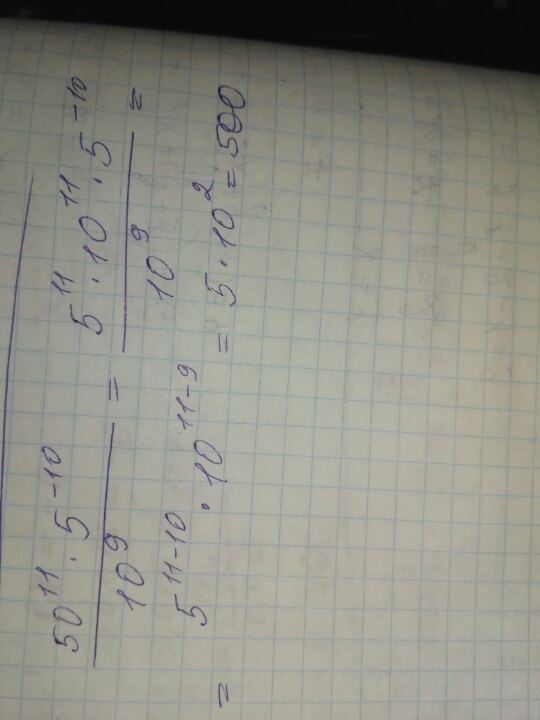 50¹¹ · 5⁻¹⁰ / 10⁹ = 5¹¹ · 10¹¹ · 5⁻¹⁰ / 10⁹ =
= 5¹¹⁻¹⁰ · 10¹¹⁻⁹ = 5 · 10² = 500